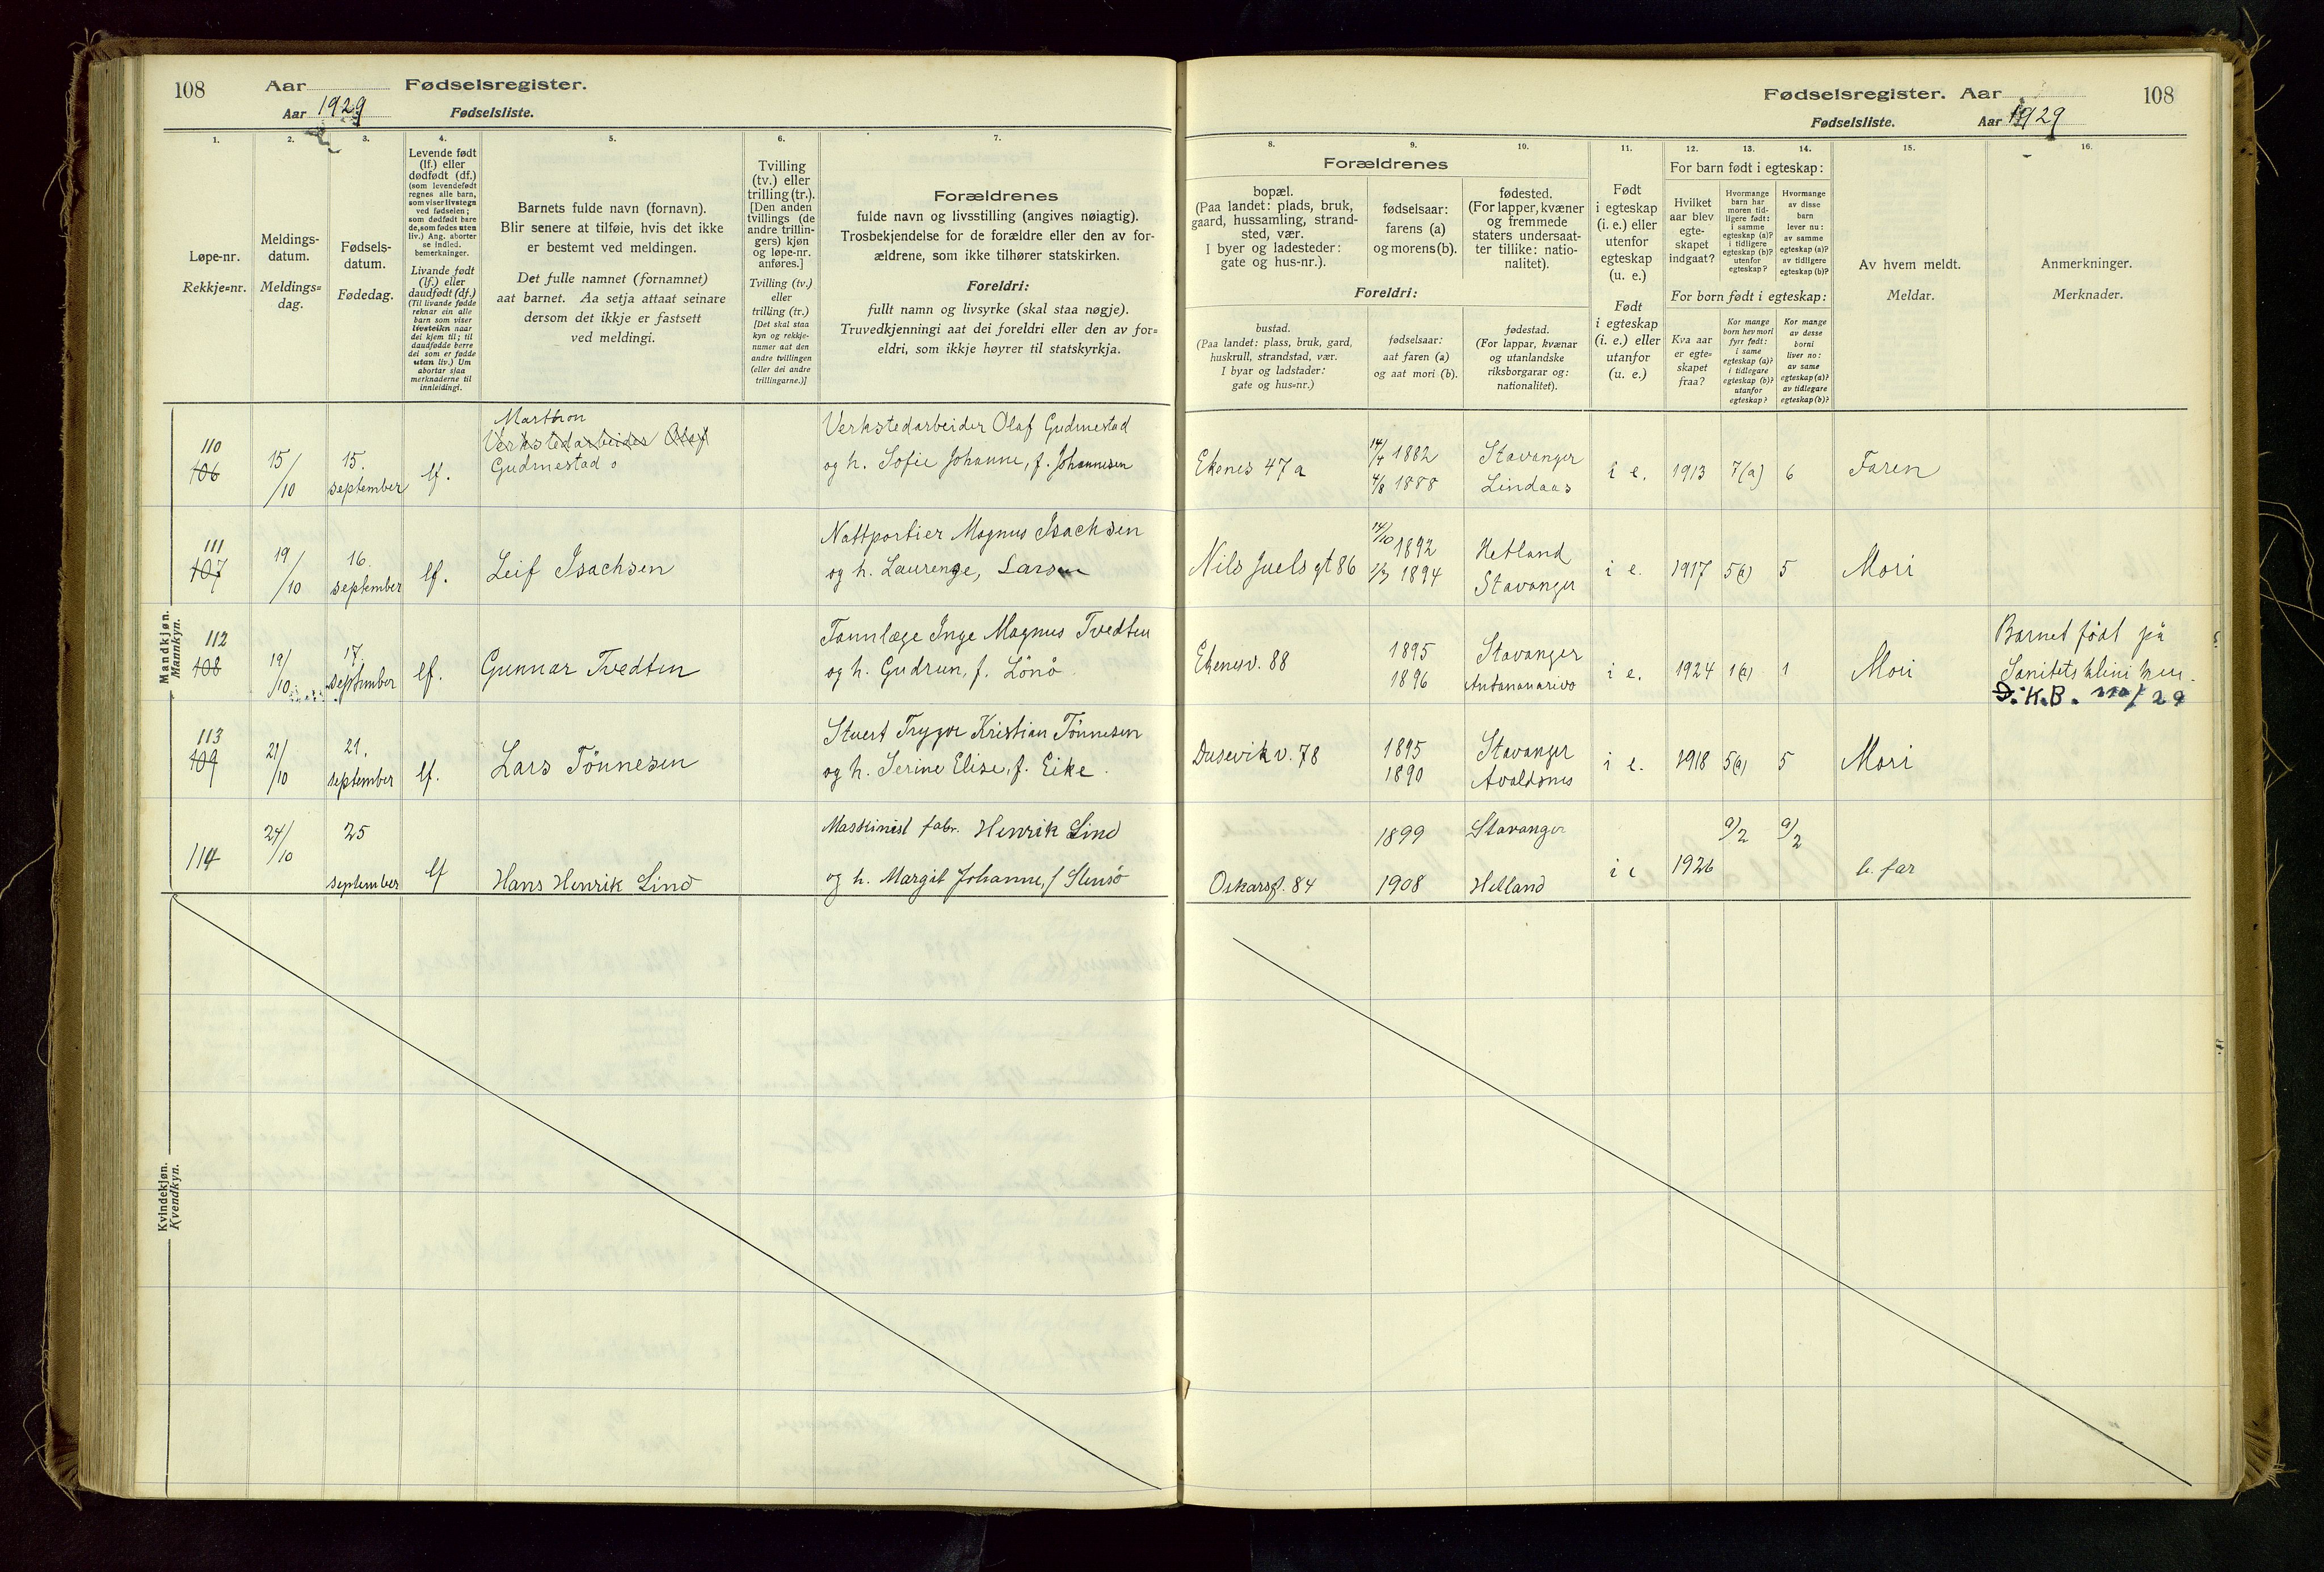 108 Aar Fødselsregister.
Aar 1929 Fødselsliste.
1.
2.
3.
4.
5.
6.
7.
Løpe-nr.
Rekkje=nr.
Meldings-
datum.
Meldings=
dag.
Fødsels-
datum.
Fødedag.
Levende født
(lf.) eller
dødfødt (df.)
(som levendefødt
regnes alle barn,
som viser livstegn
ved fødselen;
som dødfødt bare
de, som fødes uten
liv.) Ang. aborter
se indled.
bemerkninger.
Livande født
(lf.) eller
daudfødt (df.)
(Til livande fødde
reknar ein alle
barn som viser
livsteikn naar
dei kjem til; til
daudfødde berre
dei som er fødde
utan liv.) Um
abortar sjaa
merknaderne til
innleidingi.
Barnets fulde navn (fornavn).
Blir senere at tilføie, hvis det ikke
er bestemt ved meldingen.
Det fulle namnet (fornamnet)
aat barnet. Aa setja attaat seinare
dersom det ikkje er fastsett
ved meldingi.
Tvilling
(tv.) eller
trilling (tr.).
[Den anden
tvillings (de
andre trillin-
gers) kjøn
og løpe-nr.
anføres.]
Tvilling (tv.)
eller
trilling (tr.)
[Det skal staa
kyn og rekkje-
numer aat den
andre tvillingen
(eller dei andre
trillingarne.)]
Forældrenes
fulde navn og livsstilling (angives nøiagtig).
Trosbekjendelse for de forældre eller den av for-
ældrene, som ikke tilhører statskirken.
Foreldri:
fullt namn og livsyrke (skal staa nøgje).
Truvedkjenningi aat dei foreldri eller den av for=
eldri, som ikkje høyrer til statskyrkja.
Mandkjøn.
Mannkyn.
110
106
15/10
15.
september
lf.
Marthon
Verkstedarbeider Olaf
Gudmestad
Verkstedarbeider Olaf Gudmestad
og h. Sofie Johanne, f. Johannesen
111
107
19/10
16.
september
lf.
Leif Isachsen
Nattportier Magnus Isachsen
og h. Laurenze, Larsen
112
108
19/10
17.
september
lf.
Gunnar Tvedten
Tannlæge Inge Magnus Tvedten
og h. Gudrun, f. Lönö
113
109
21/10
21.
september
lf.
Lars Tönnesen
Stuert Trygve Kristian Tönnesen
og h. Serine Elise, f. Eike.
114
24/10
25
september
lf
Hans Henrik Lind
Maskinist fabr. Henrik Lind
og h. Margit Johanne, f Stensö
Kvindekjøn.
Kvendkyn.
Fødselsregister. Aar 108
Fødselsliste. Aar 1929
8.
9.
10.
11.
12.
13.
14.
15.
16.
Forældrenes
bopæl.
(Paa landet: plads, bruk,
gaard, hussamling, strand-
sted, vær.
I byer og ladesteder:
gate og hus-nr.).
fødselsaar:
farens (a)
og morens (b).
fødested.
(For lapper, kvæner
og fremmede
staters undersaat-
ter tillike: natio-
nalitet).
Foreldri:
bustad.
(Paa landet: plass, bruk, gard,
huskrull, strandstad, vær.
I byar og ladstader:
gate og hus=nr.)
fødselsaar:
aat faren (a)
og aat mori (b).
fødestad.
(For lappar, kvænar
og utanlandske
riksborgarar og:
nationalitet).
Født
i egteskap
(i. e.) eller
utenfor
egteskap
(u. e.)
Født
i egteskap
(i. e.) eller
utanfor
egteskap
(u. e.)
For barn født i egteskap:
Hvilket
aar blev
egte-
skapet
indgaat?
Hvormange
barn har
moren tid-
ligere født:
i samme
egteskap (a)?
i tidligere
egteskap (b)?
utenfor
egteskap?
Hvormange
av disse
barn
lever nu:
av samme
egteskap (a)?
av tidligere
egteskap (b)?
For born født i egteskap:
Kva aar
er egte=
skapet
fraa?
Kor mange
born hev mori
fyrr født:
i same
egteskap (a)?
i tidlegare
egteskap (b)?
utanfor
egteskap?
Kor mange
av desse
borni
liver no:
av same
egteskap (a)?
av tidlegare
egteskap (b)?
Av hvem meldt.
Meldar.
Anmerkninger.
Merknader.
Ekenes 47 a
14/4 1882
4/8 1888
Stavanger
Lindaas
i e.
1913
7(a)
6
Faren
Nils Juels gt 86
14/10 1892
1/3 1894
Hetland
Stavanger
i e.
1917
5(a)
5
Mori
Ekenesv. 88
1895
1896
Stavanger
Antananarivo
i e.
1924
1(a)
1
Mori
Barnet födt på
Sanitetskliniken.
D.K.B. 110/29
Dusevikv. 78
1895
1890
Stavanger
Avaldsnes
i e.
1918
5(a)
5
Mori
Oskarsgt. 84
1899
1908
Stavanger
Hetland
i e
1926
a/2
a/2
b. far